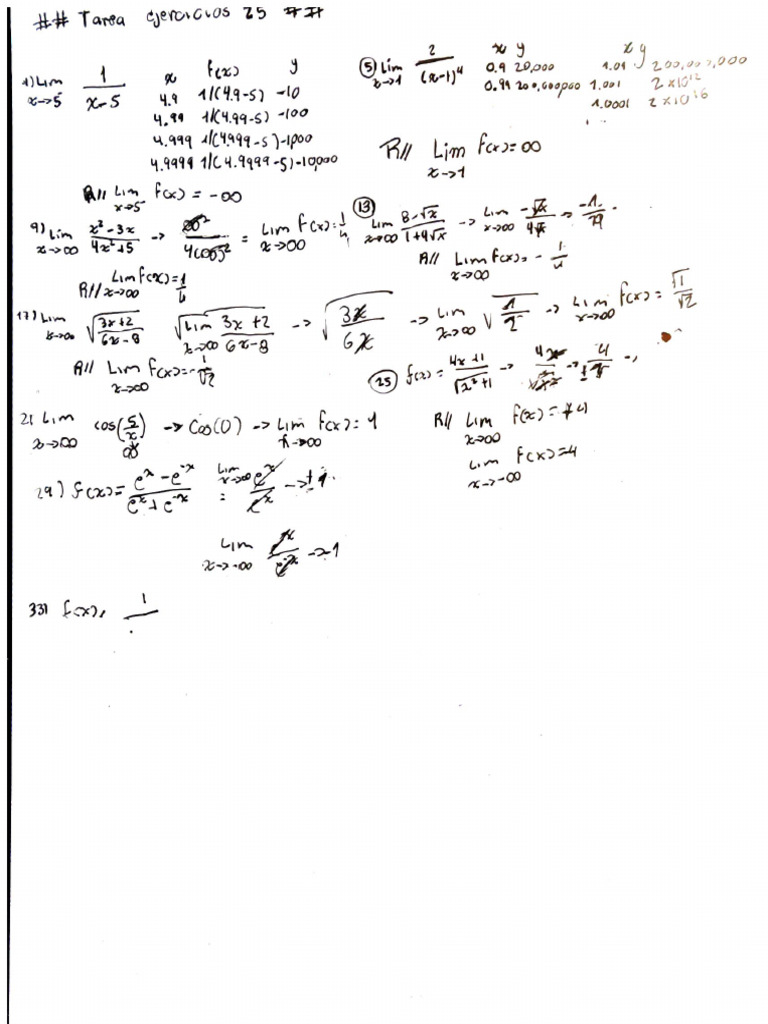 ## Tarea ejercicios 25 ##
1) Lim x→5⁻ 1/(x-5)
x f(x) y
4.9 1/(4.9-5) -10
4.99 1/(4.99-5) -100
4.999 1/(4.999-5) -1,000
4.9999 1/(4.9999-5) -10,000
R// Lim x→5⁻ f(x) = -∞
⑤ Lim x→1 2/(x-1)⁴
x y x y
0.9 20,000 1.01 200,000,000
0.99 200,000,000 1.001 2×10¹²
1.0001 2×10¹⁶
R// Lim x→1 f(x) = ∞
9) Lim x→∞ (x²-3x)/(4x²+5) → ∞²/4(∞)² = Lim x→∞ f(x) = 1/4
R// Lim x→∞ f(x) = 1/4
⑬ Lim x→∞ (8-√x)/(1+4√x) → Lim x→∞ -√x/4√x →
R// Lim x→∞ f(x) = -1/4
17) Lim x→∞ √((3x+2)/(6x-8)) √(Lim x→∞ (3x+2)/(6x-8)) → √(3x/6x) → Lim x→∞ √(1/2) → Lim x→∞ f(x) = √1/√2
R// Lim x→∞ f(x) = 1/√2
21 Lim x→∞ cos(5/x) → Cos(0) → Lim x→∞ f(x) = 1
㉕ f(x) = (4x+1)/√(x²+1) →
R// Lim x→∞ f(x) = 4
Lim x→-∞ f(x) = 4
29) f(x) = (eˣ-e⁻ˣ)/(eˣ+e⁻ˣ) = Lim x→∞ eˣ/eˣ → +1
Lim x→-∞ → 1
33) f(x) = 1